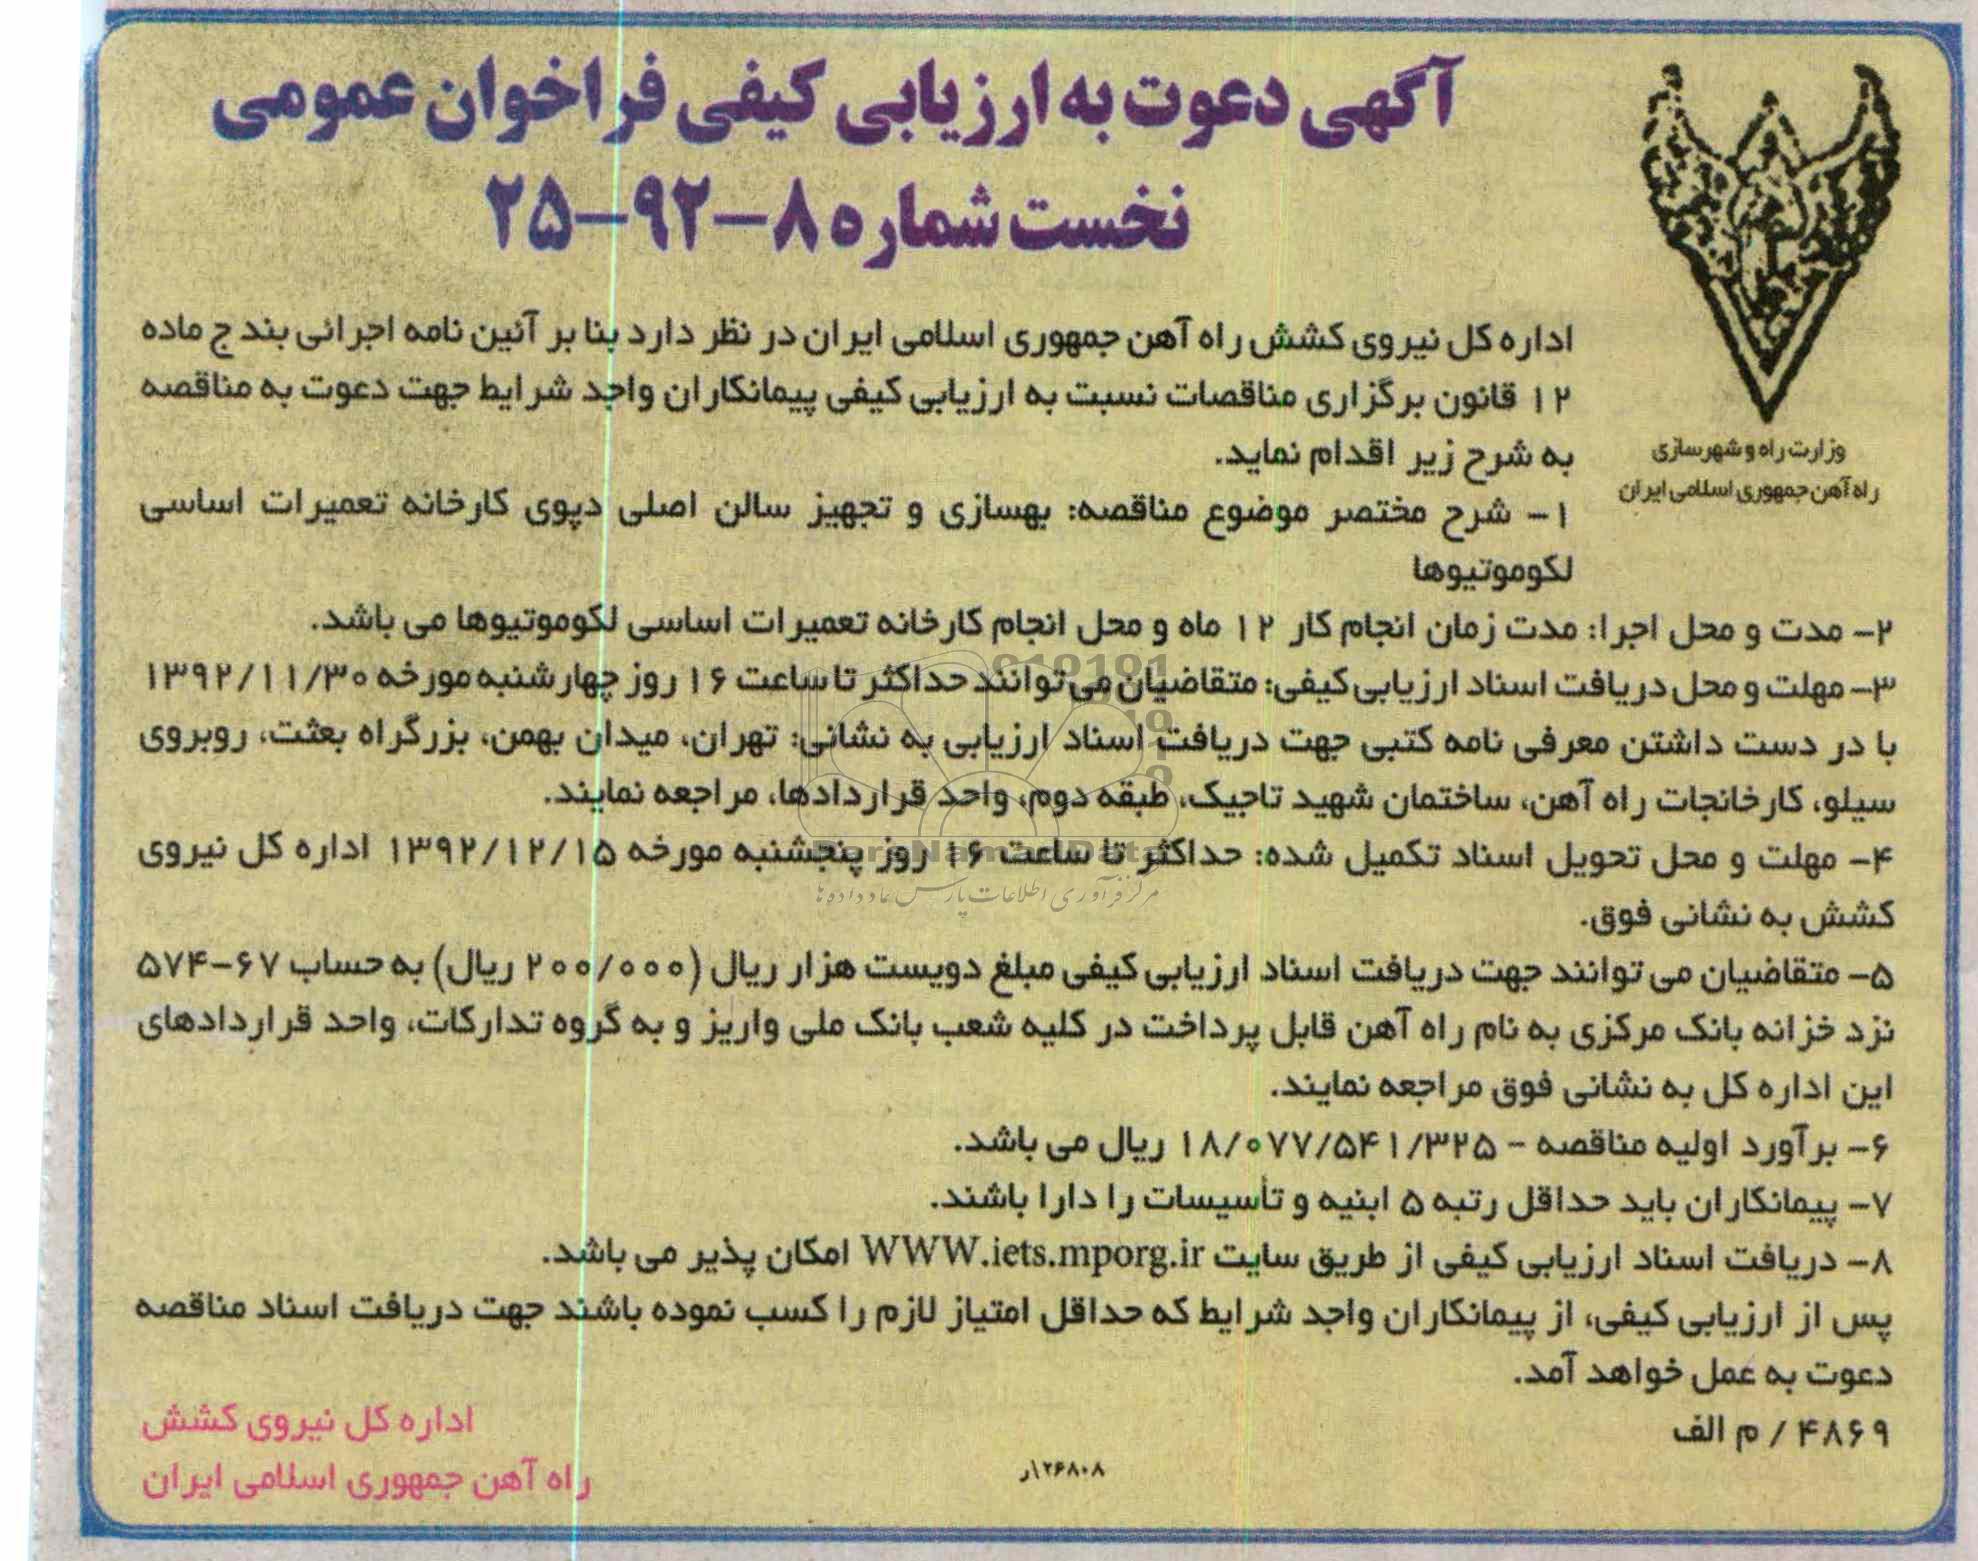 آگهی دعوت به ارزیابی کیفی فراخوان عمومی
نخست شماره ۸–۹۲–۲۵
وزارت راه و شهرسازی
راه آهن جمهوری اسلامی ایران
اداره کل نیروی کشش راه آهن جمهوری اسلامی ایران در نظر دارد بنا بر آئین نامه اجرائی بند ج ماده
۱۲ قانون برگزاری مناقصات نسبت به ارزیابی کیفی پیمانکاران واجد شرایط جهت دعوت به مناقصه
به شرح زیر اقدام نماید.
۱– شرح مختصر موضوع مناقصه: بهسازی و تجهیز سالن اصلی دپوی کارخانه تعمیرات اساسی
لکوموتیوها
۲– مدت و محل اجرا: مدت زمان انجام کار ۱۲ ماه و محل انجام کارخانه تعمیرات اساسی لکوموتیوها می باشد.
۳– مهلت و محل دریافت اسناد ارزیابی کیفی: متقاضیان می توانند حداکثر تا ساعت ۱۶ روز چهارشنبه مورخه ۱۳۹۲/۱۱/۳۰
با در دست داشتن معرفی نامه کتبی جهت دریافت اسناد ارزیابی به نشانی: تهران، میدان بهمن، بزرگراه بعثت، روبروی
سیلو، کارخانجات راه آهن، ساختمان شهید تاجیک، طبقه دوم، واحد قراردادها، مراجعه نمایند.
۴– مهلت و محل تحویل اسناد تکمیل شده: حداکثر تا ساعت ۱۶ روز پنجشنبه مورخه ۱۳۹۲/۱۲/۱۵ اداره کل نیروی
مرکز فرآوری اطلاعات پارس نماد داده ها
کشش به نشانی فوق.
۵– متقاضیان می توانند جهت دریافت اسناد ارزیابی کیفی مبلغ دویست هزار ریال (۲۰۰/۰۰۰ ریال) به حساب ۶۷–۵۷۴
نزد خزانه بانک مرکزی به نام راه آهن قابل پرداخت در کلیه شعب بانک ملی واریز و به گروه تدارکات، واحد قراردادهای
این اداره کل به نشانی فوق مراجعه نمایند.
۶– برآورد اولیه مناقصه – ۱۸/۰۷۷/۵۴۱/۳۲۵ ریال می باشد.
۷– پیمانکاران باید حداقل رتبه ۵ ابنیه و تأسیسات را دارا باشند.
۸– دریافت اسناد ارزیابی کیفی از طریق سایت WWW.iets.mporg.ir امکان پذیر می باشد.
پس از ارزیابی کیفی، از پیمانکاران واجد شرایط که حداقل امتیاز لازم را کسب نموده باشند جهت دریافت اسناد مناقصه
دعوت به عمل خواهد آمد.
۴۸۶۹ / م الف
۱۲۶۸۰۸ر
اداره کل نیروی کشش
راه آهن جمهوری اسلامی ایران